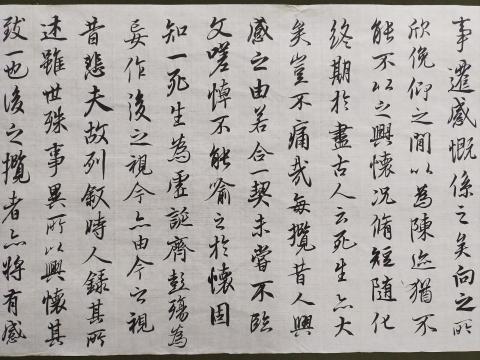 事遷感慨係之矣向之所
欣俛仰之間以為陳迹猶不
能不以之興懷况脩短随化
終期於盡古人云死生亦大
矣豈不痛哉每攬昔人興
感之由若合一契未嘗不臨
文嗟悼不能喻之於懷固
知一死生為虛誕齊彭殤為
妄作後之視今亦由今之視
昔悲夫故列叙時人録其所
述雖世殊事異所以興懷其
致一也後之攬者亦將有感